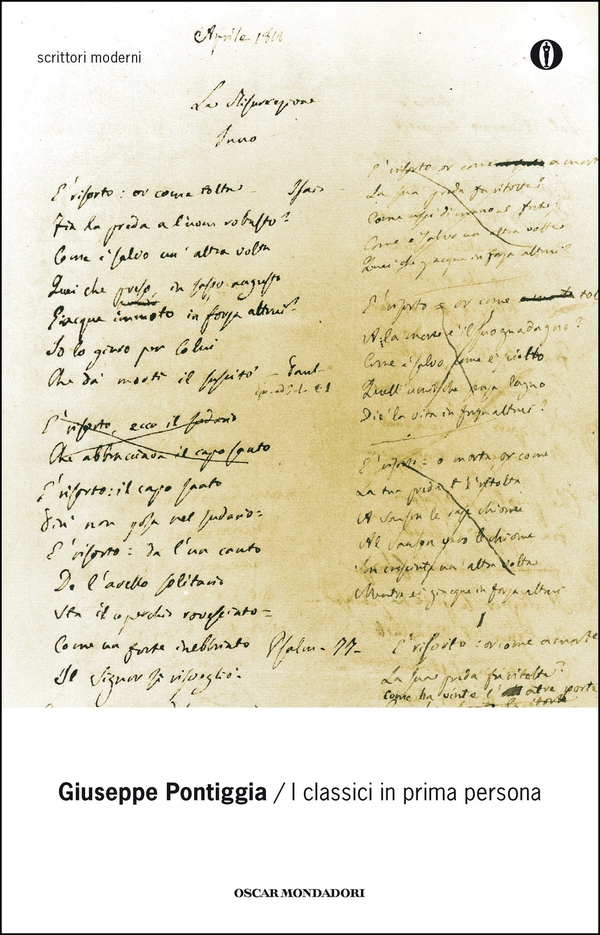 scrittori moderni
Aprile 1812
La Risurrezione
Inno
E' risorto: or come tolta Isaia
Fia la preda a l'uom robusto?
Come è salvo un' altra volta
Quei che preso, in sasso augusto
Giacque immoto in forza altrui?
Io lo giuro per Colui
Che da' morti il suscitò
E' risorto, ecco il sudario
Che abbracciava il capo santo
E' risorto: il capo santo
Più non posa nel sudario:
E' risorto: da l'un canto
De l'avello solitario
Sta il coperchio rovesciato:
Come un forte inebbriato Psalm. 77.
Il Signor si risvegliò:
E' risorto or come
La sua preda fu ritolta?
Come è salvo un altra volta
Quei che giacque in forza altrui?
E' risorto or come
Come è salvo, come è
Di' la vita in forza altrui?
E' risorto: o morte or come
La tua preda t'è ritolta
un' altra volta
giacque in forza altrui
E' risorto: or come a morte
La sua preda fu ritolta?
Giuseppe Pontiggia / I classici in prima persona
OSCAR MONDADORI